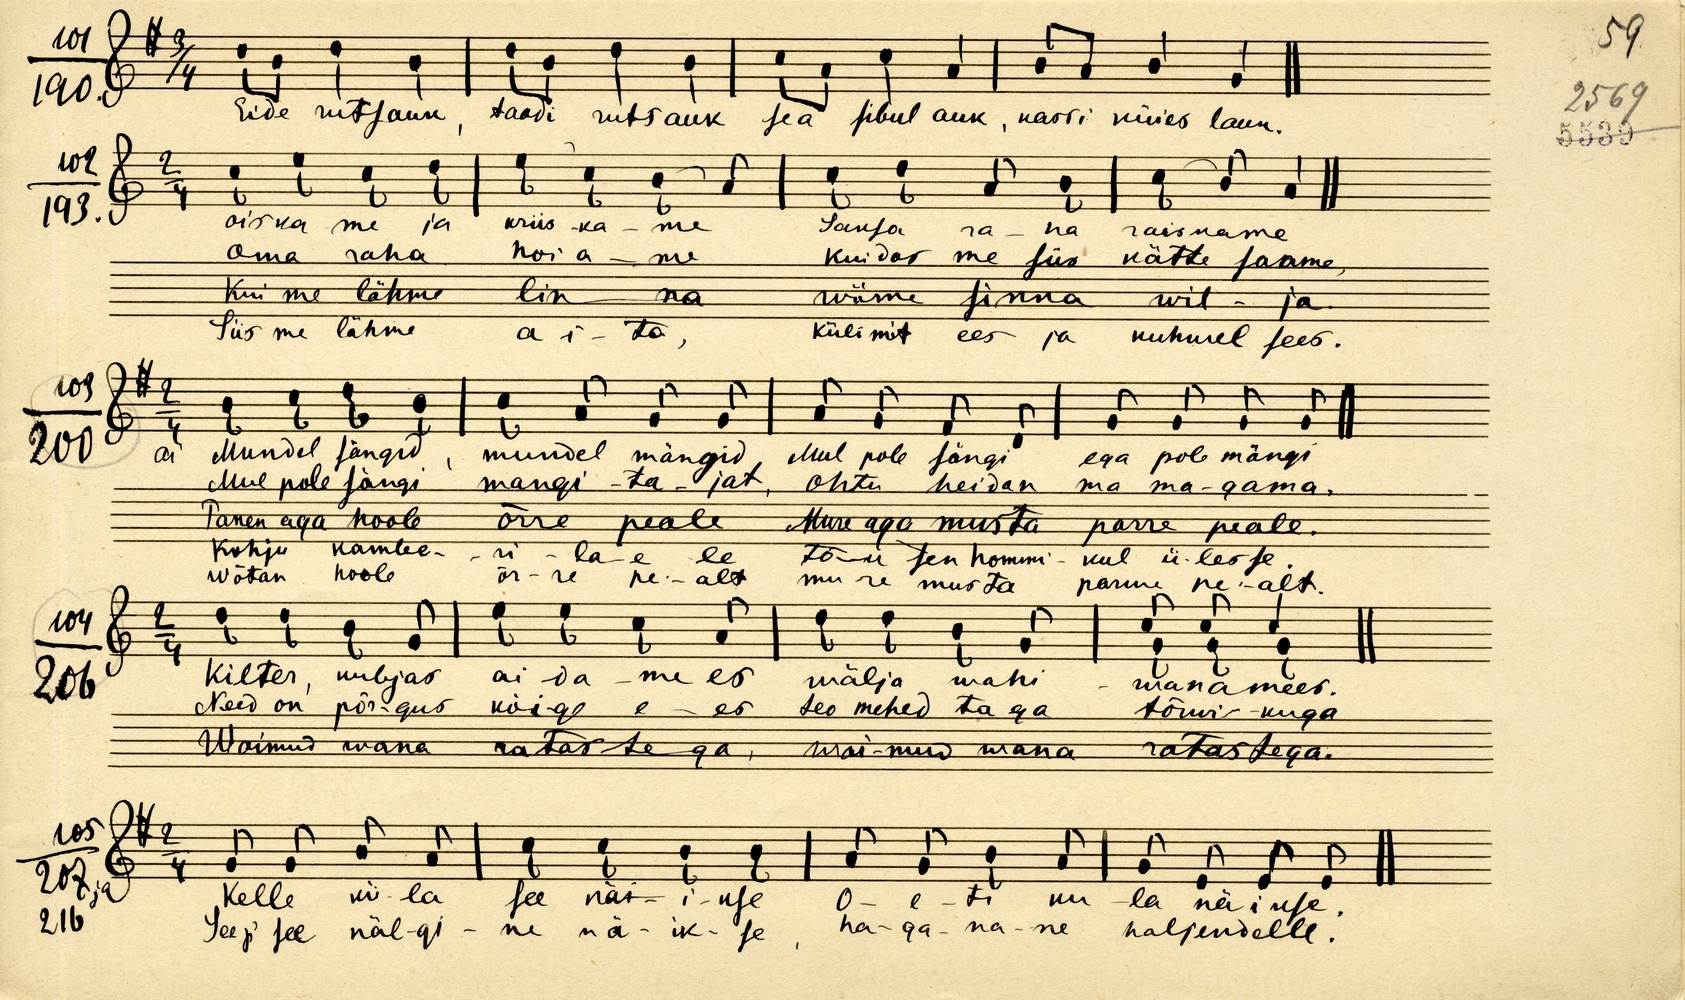 59
2569
5539
101
190.
3/4
Eide rutsauk, taadi rutsauk sea sibul auk, kassi küües lauk.
102
193.
2/4
oiska me ja kriis-ka-me Sauja ra-ha raiskame
Oma raha hoi a-me kuidas me siis kätte saame,
Kui me lähme lin na wiime sinna wil-ja.
Siis me lähme a i-ta, külimit ees ja kuhwel sees.
103
200
2/4
ai Mundel sängid, mundel mängid, Mul pole sängi ega pole mängi
Mul pole sängi mangi-ta-jat, Ohtu heidan ma ma-gama.
Panen aga hoole õrre peale Mure aga musta parre peale.
Kohju kambe-ri-la-e le tõ-u sen hommi-kul ü-lesse.
wõtan hoole õr-re pe-alt mu re musta parre pe-alt.
104
206
2/4
Kilter, kubjas ai-da-me es wälja wahi-wana mees.
Need on põr-gus kõi-ge e-es teo mehed ta ga tõuwi-kuga
Waimud wana ratas-te ga, wai-mud wana ratastega.
105
207, ja
216
2/4
Kelle kü-la see näi-i-use O-e-ti ku-la näiuse.
Seep see näl-gi-ne nä-ik-se, ha-ga-na-ne haljendelle.